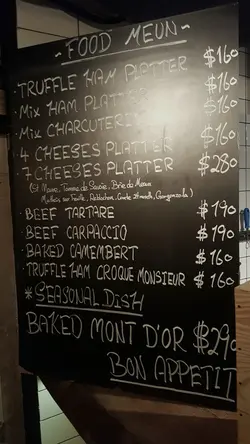 - FOOD MEUN -
· TRUFFLE HAM PLATTER $160
· Mix HAM PLATTER $160
· Mix CHARCUTERIE $160
· 4 CHEESES PLATTER $160
· 7 CHEESES PLATTER $280
(St Maure, Tomme de Savoie, Brie de Meaux
Reblochon, Comté, Gorgonzola)
· BEEF TARTARE $190
· BEEF CARPACCIO $190
· BAKED CAMEMBERT $160
· TRUFFLE HAM CROQUE MONSIEUR $160
* SEASONAL DISH
BAKED MONT D'OR $290
BON APPETIT